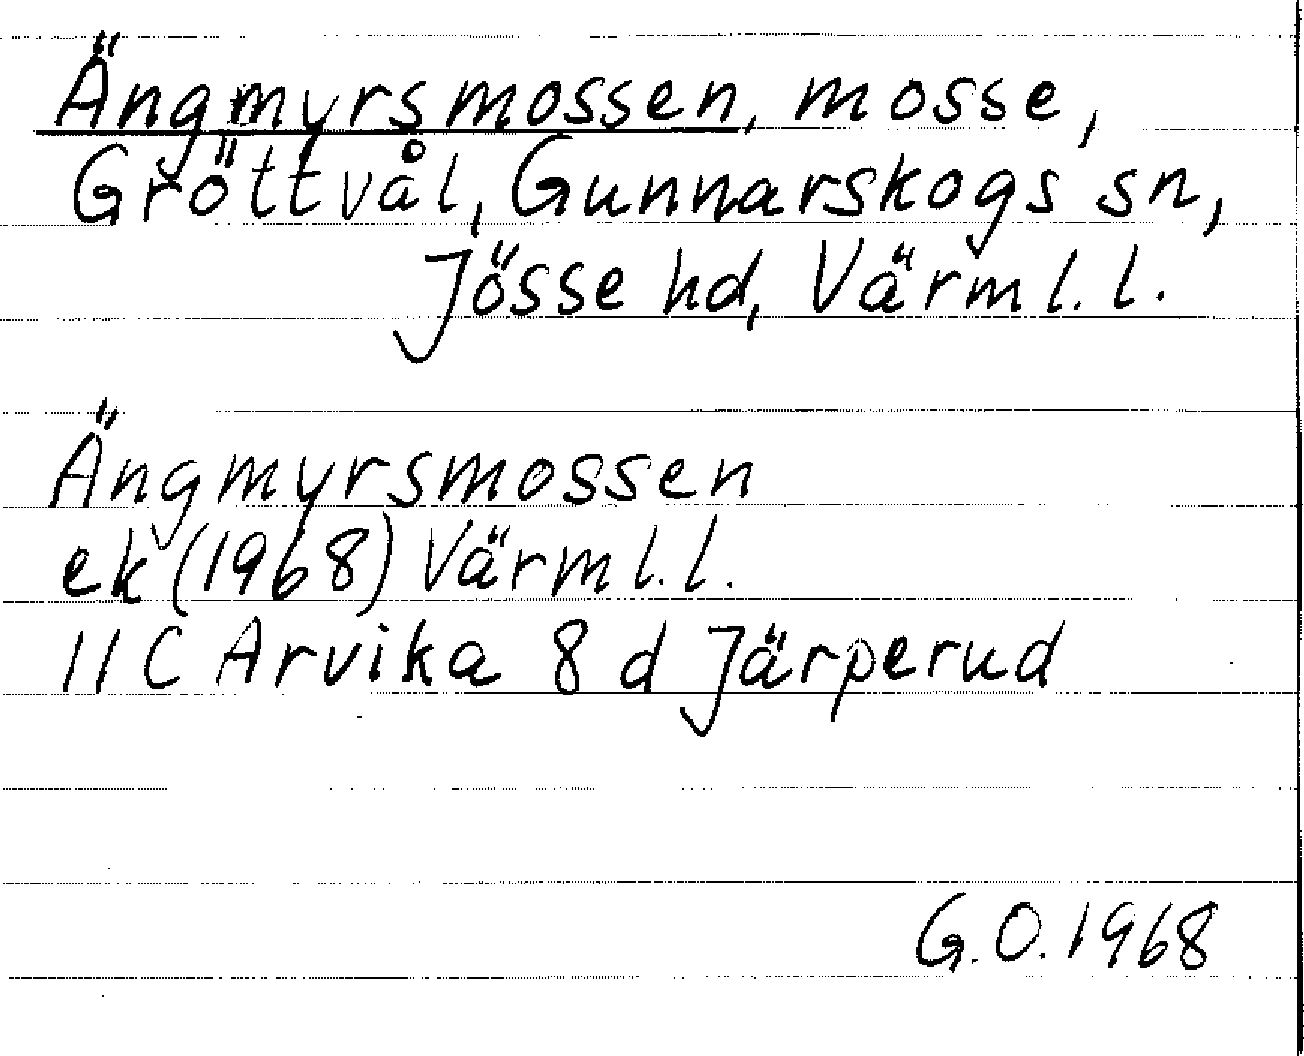 Ängmyrsmossen, mosse,
Gröttvål, Gunnarskogs sn,
Jösse hd, Värml. l.
Ängmyrsmossen
ek (1968) Värml. l.
11 C Arvika 8 d Järperud
G.O. 1968